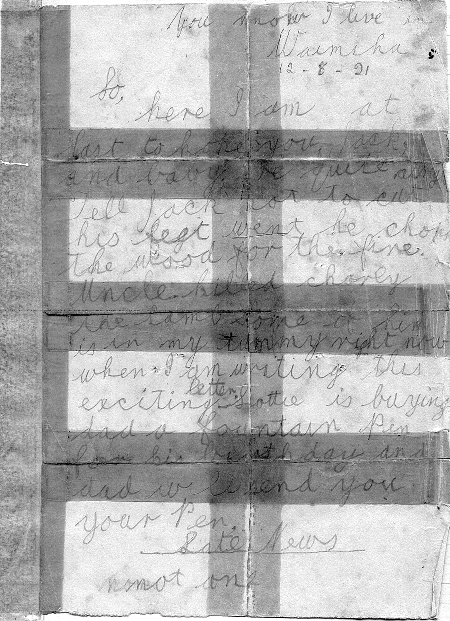 You know I live in
Waimiha
12-8-21
So,
here I am at
last to hope you Jack,
and baby are quite
Tell Jack not to cu
his legs went he chops
the wood for the fire.
Uncle killed Charly
the lamb some of him
is in my tummy right now
when I am writing this
exciting letter Lottie is buying
dad a fountain Pen
for his birthday and
dad will send you
your Pen.
Late News